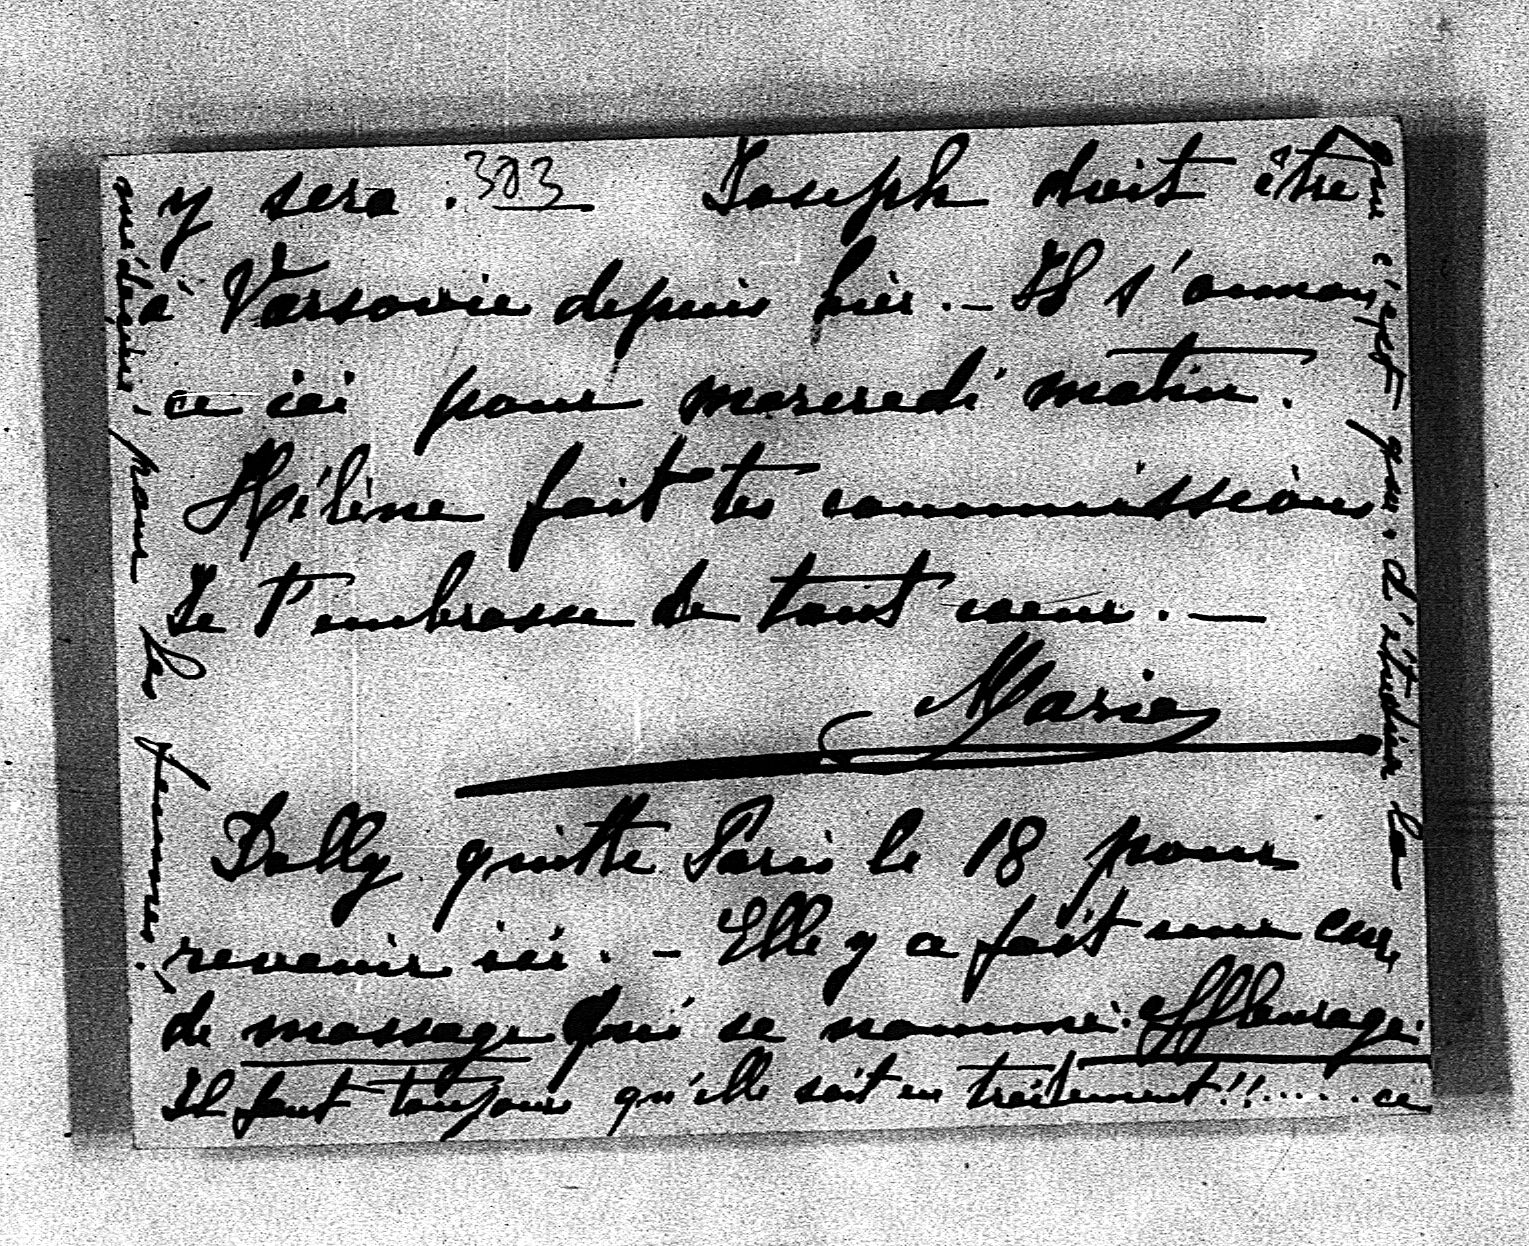 y sera. 303 Joseph doit être
à Varsovie depuis hier. — Il s'annon-
ce ici pour mercredi matin.
Hélène fait tes commissions
Je t'embrasse de tout coeur. —
Marie
Dolly quitte Paris le 18 pour
revenir ici. — Elle y a fait une cure
de massage qui se nomme: effleurage.
Il faut toujours qu'elle soit en traitement!!..... ce
que c'est que d'étudier la
médecine pour les femmes.